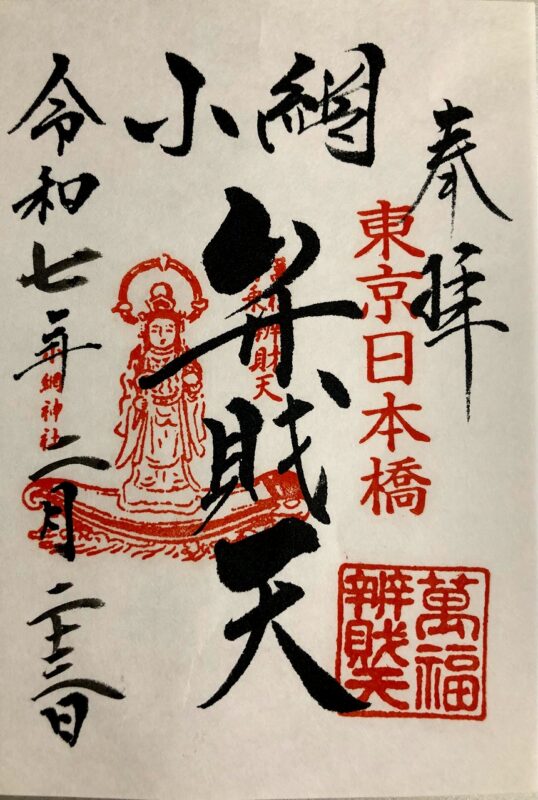 奉拝
東京日本橋
萬福
辨財天
小網
弁財天
萬福
舟乗辨財天
小網神社
令和七年二月二十三日